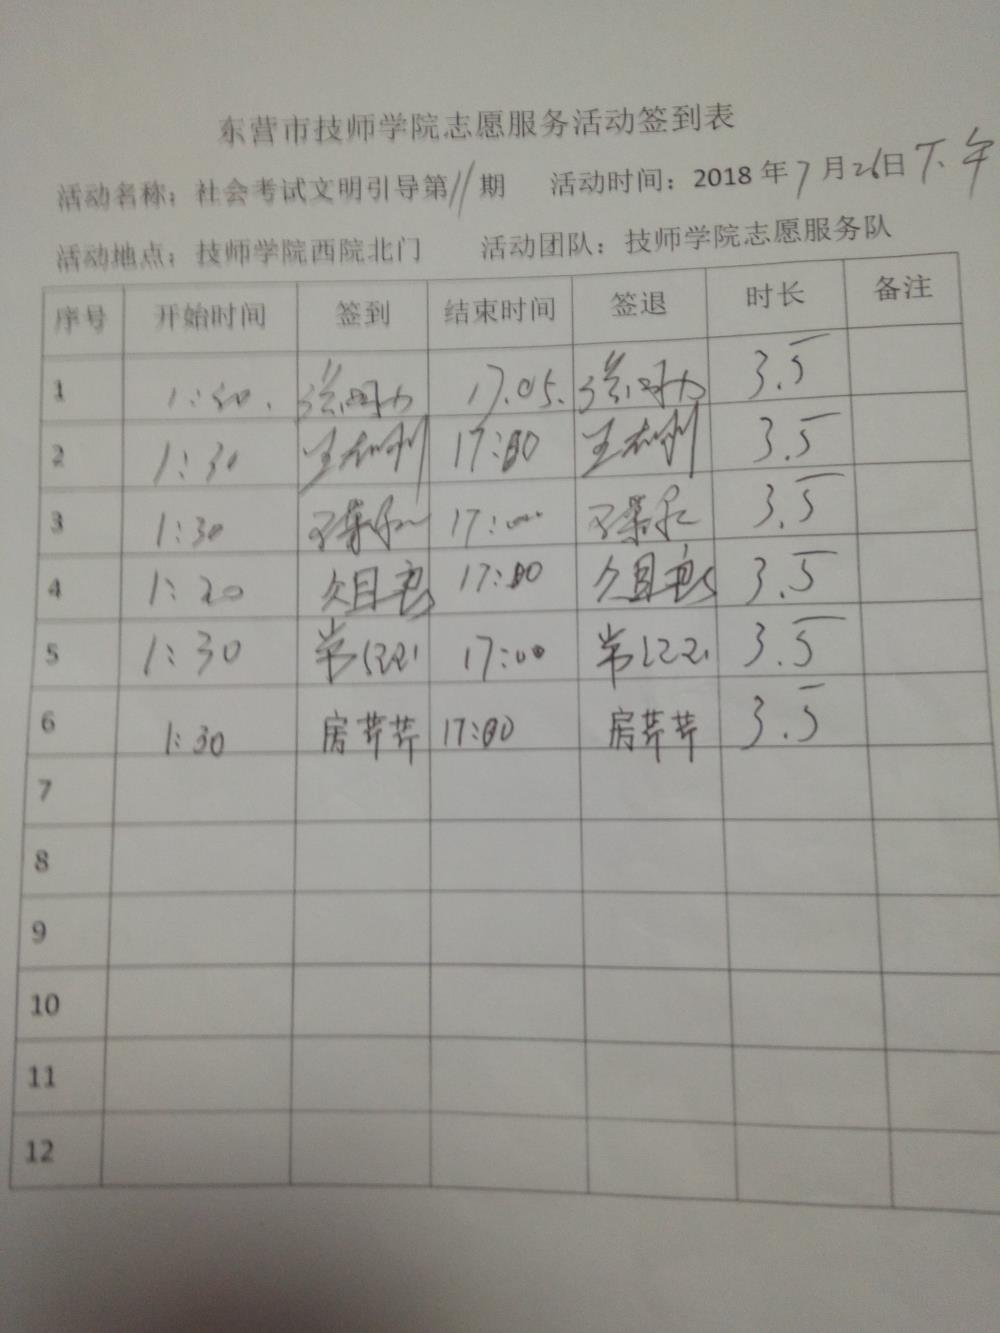 东营市技师学院志愿服务活动签到表
活动名称：社会考试文明引导第11期 活动时间：2018年7月26日下午
活动地点：技师学院西院北门 活动团队：技师学院志愿服务队
序号 开始时间 签到 结束时间 签退 时长 备注
1 17.05. 3.5
2 1:30 17:00 3.5
3 1:30 17:00 3.5
4 1:20 17:00 3.5
5 1:30 17:00 3.5
6 1:30 房芹芹 17:00 房芹芹 3.5
7
8
9
10
11
12